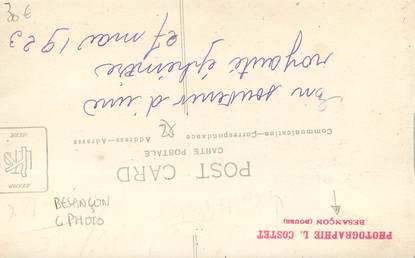 En souvenir d'une
royauté éphémère
27 mai 1923
POST CARD
CARTE POSTALE
Communication—Correspondance
Address—Adresse
BESANÇON
6 PHOTO
PHOTOGRAPHIE L. COSTET
BESANÇON (DOUBS)